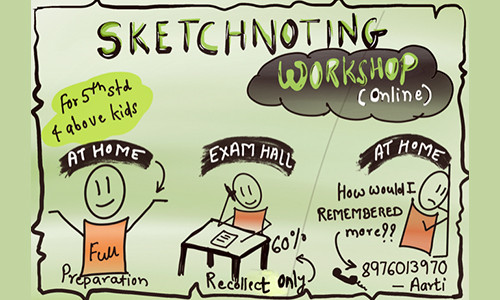 SKETCHNOTING
WORKSHOP
(Online)
For 5th std
& above kids
AT HOME
Full
Preparation
EXAM HALL
60%
Recollect Only
AT HOME
How would I
REMEMBERED
more??
8976013970
— Aarti